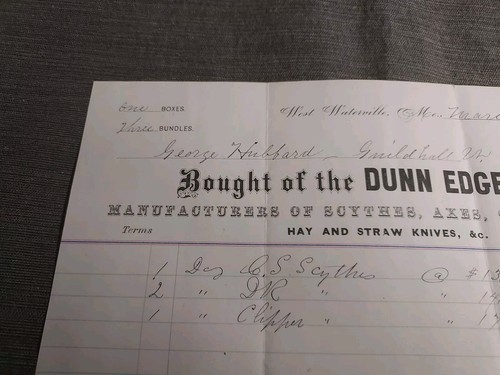 one BOXES
three BUNDLES.
West Waterville, Me.
George Hubbard - Guildhall Vt.
Bought of the DUNN EDGE
MANUFACTURERS OF SCYTHES, AXES,
Terms HAY AND STRAW KNIVES, &c.
1 Doz C.S Scythes @ $13
2 " DR " "
1 " Clipper " "